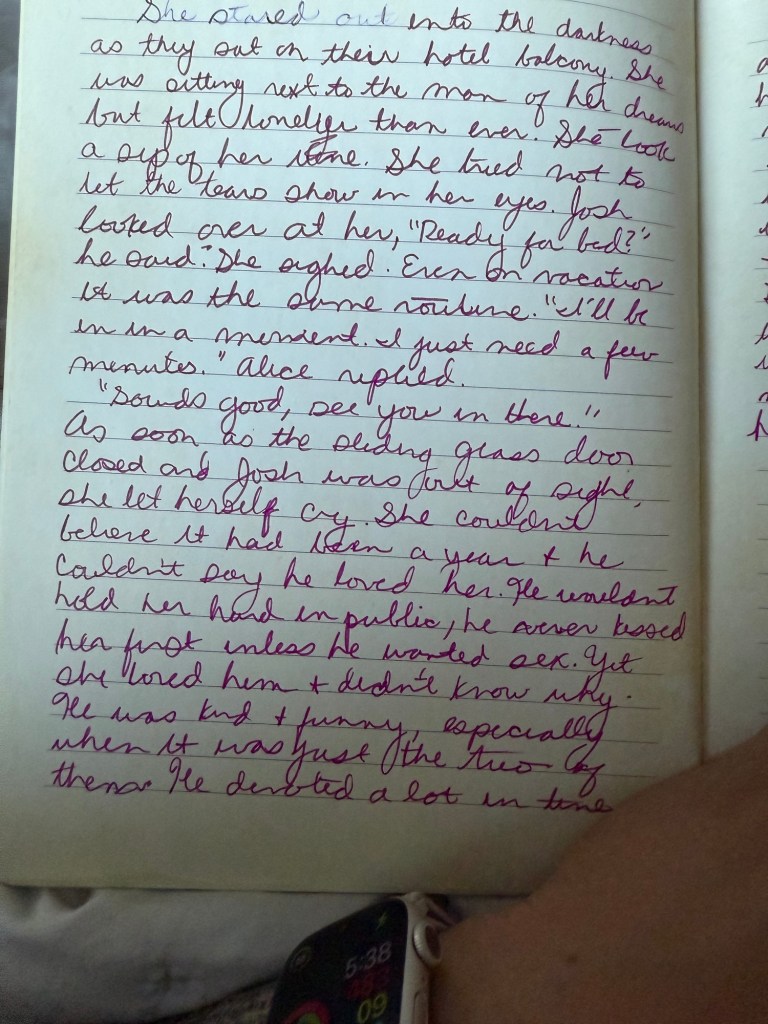 She stared out into the darkness
as they sat on their hotel balcony. She
was sitting next to the man of her dreams
but felt lonelier than ever. She took
a sip of her wine. She tried not to
let the tears show in her eyes. Josh
looked over at her, "Ready for bed?"
he said. She sighed. Even on vacation
it was the same routine. "I'll be
in in a moment. I just need a few
minutes." Alice replied.
"Sounds good, see you in there."
As soon as the sliding glass door
closed and Josh was out of sight,
she let herself cry. She couldn't
believe it had been a year + he
couldn't say he loved her. He wouldn't
hold her hand in public, he never kissed
her first unless he wanted sex. Yet
she loved him + didn't know why.
He was kind + funny, especially
when it was just the two of
them. He devoted a lot in time
5:38
09